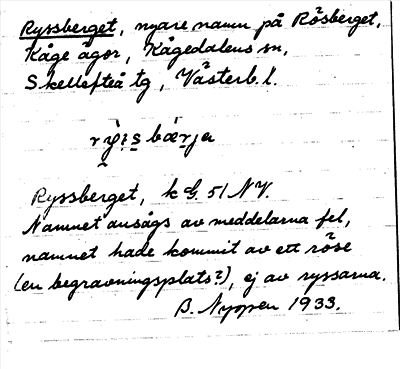 Ryssberget, nyare namn på Rösberget,
Kåge ägor, Kågedalens sn,
Skellefteå tg, Västerb. l.
Ryssberget, k G. 51 NV.
Namnet ansågs av meddelarna fel,
namnet hade kommit av ett röse
(en begravningsplats?), ej av ryssarna.
B. Nyopen 1933.